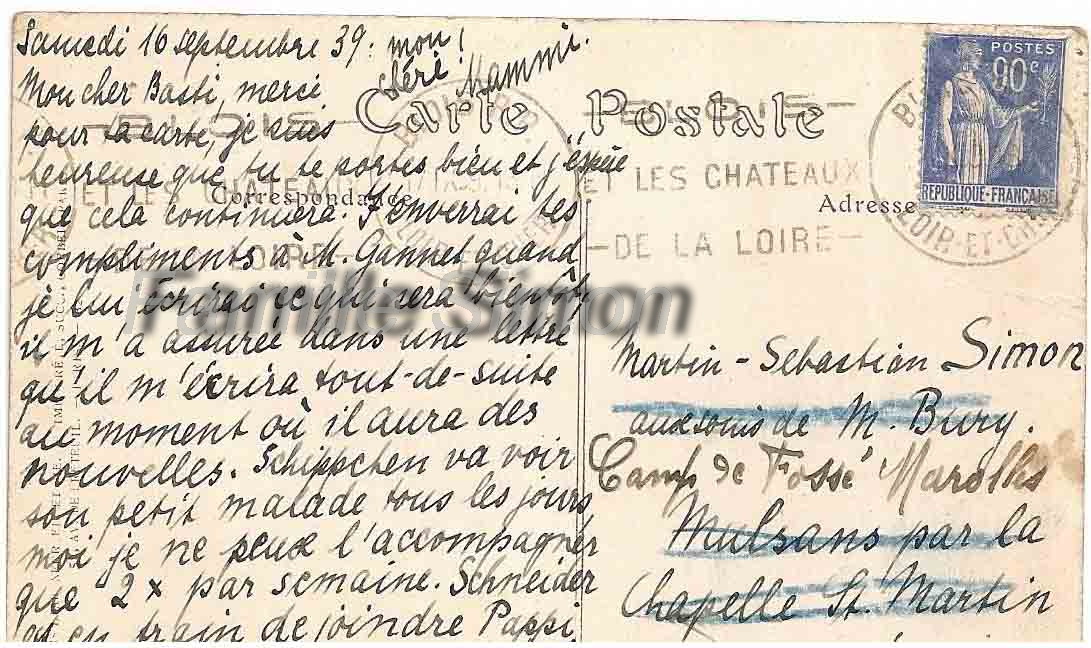 Samedi 16 septembre 39: mon!
Mon cher Basti, merci
chéri! Mammi.
pour ta carte, je suis
heureuse que tu te portes bien et j'éspère
que cela continuera. J'enverrai tes
compliments à M. Gannet quand
je lui écrirai ce qui sera bientôt,
il m'a assurée dans une lettre
qu'il m'écrira tout-de-suite
au moment où il aura des
nouvelles. Schippchen va voir
son petit malade tous les jours
moi je ne peux l'accompagner
que 2 x par semaine. Schneider
est en train de joindre Pappi,
Carte Postale
Correspondance
Adresse
POSTES
90c
REPUBLIQUE-FRANÇAISE
BLOIS
LOIR-ET-CHER
ET LES CHATEAUX
DE LA LOIRE
Martin-Sebastian Simon
aux soins de M. Bury.
Camp de Fossé Marolles
Mulsans par la
Chapelle St. Martin
Famille Simon